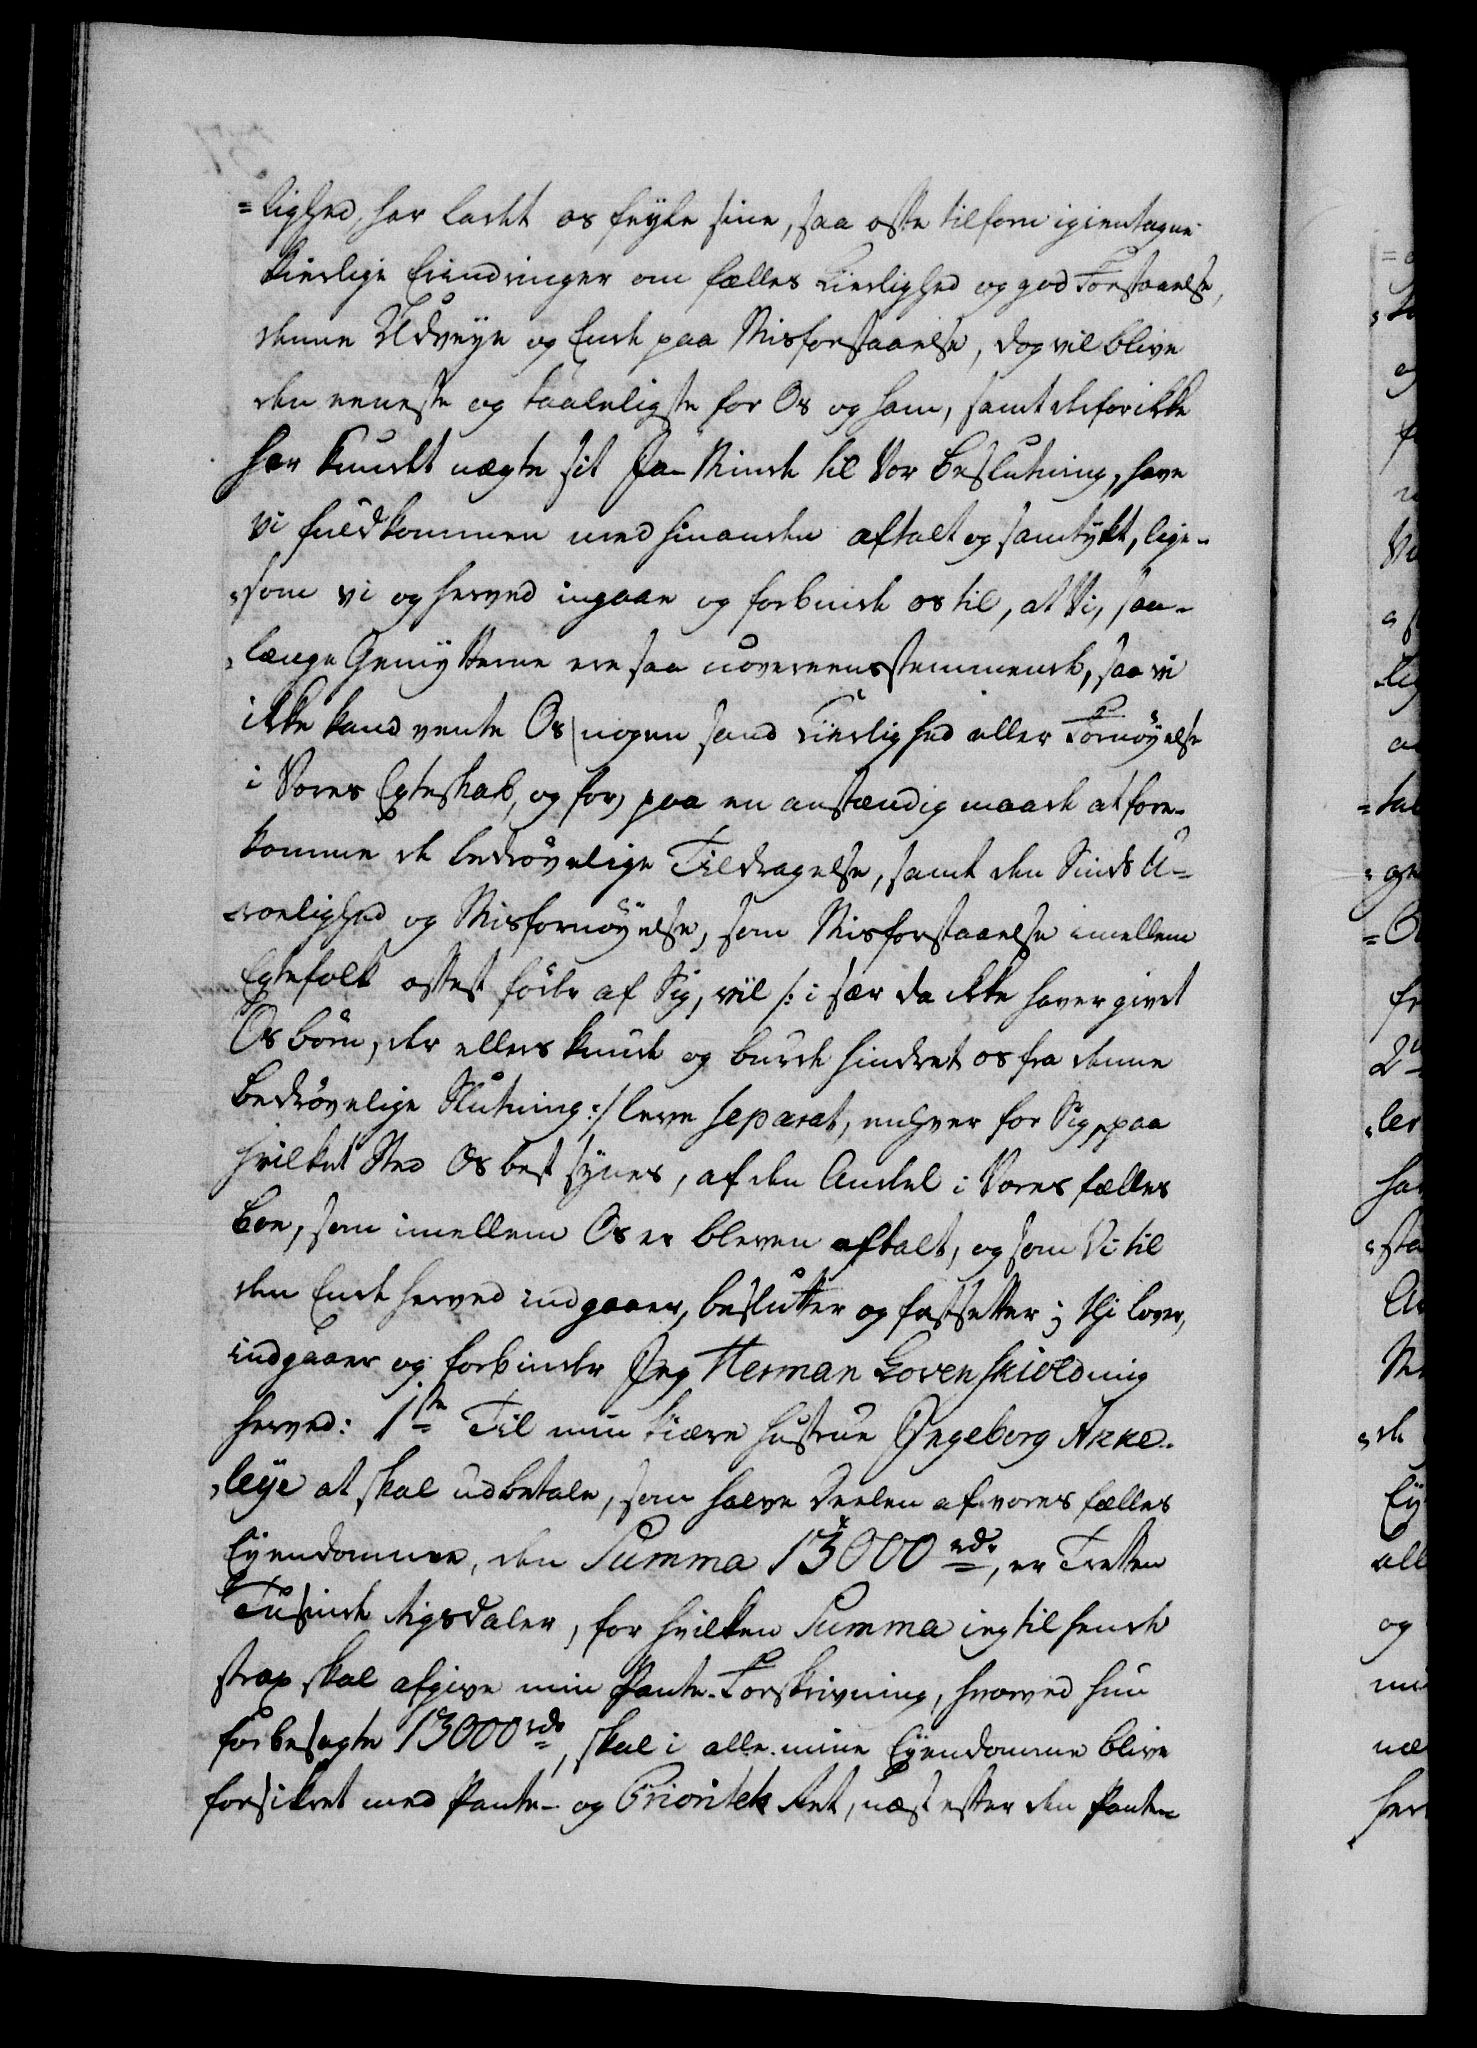 =lighed, har ladet os høre sine, saa ofte tilforn igientagne
kierlige Erindringer om fælles Kierlighed og god Forstaaelse,
denne Udveye og Ende paa Misforstaaelse, dog vil blive
den eneste og taaleligste for Os og ham, samt derfor ikke
har kundet nægte sit Ja Minde til Vor Beslutning, have
vi fuldkommen med hinanden aftalt og samtykt, lige-
som vi og herved ingaae og forbinde os til, at Vi, saa-
længe Gemytterne ere saa uovereensstemmende, saa vi
ikke kand vente Os nogen sand Kierlighed eller Fornøyelse
i Vores Egteskab, og for, paa en anstændig maade at fore-
komme de bedrøvelige Tildragelse, samt den Sinds U-
roelighed og Misfornøyelse, som Misforstaaelse imellem
Egtefolk oftest føder af Sig, vil /: i sær da ikke haver givet
Os børn, der ellers kunde og burde hindret os fra denne
bedrøvelige Slutning :/ leve separat, enhver for Sig, paa
hvilket Sted Os best synes, af den Andeel i Vores fælles
Boe, som imellem Os er bleven aftalt, og som Vi til
den Ende herved indgaaer, beslutter og fastsetter; thi lover,
indgaaer og forbinder Jeg Herman Lovenskiold mig
herved: 1ste Til min kiære Hustrue Ingeborg Akke-
leye at skal udbetale, som halve Deelen af vores fælles
Eyendomme, den Summa 13000 rdr, er Tretten
Tusinde Rigsdaler, for hvilken Summa ieg til hende
strax skal afgive min Pante-Forskrivning, hvorved hun
forbesagte 13000 rdr, skal i alle mine Eyendomme blive
forsikret med Pante- og Prioritets Ret, næst efter den Pante-